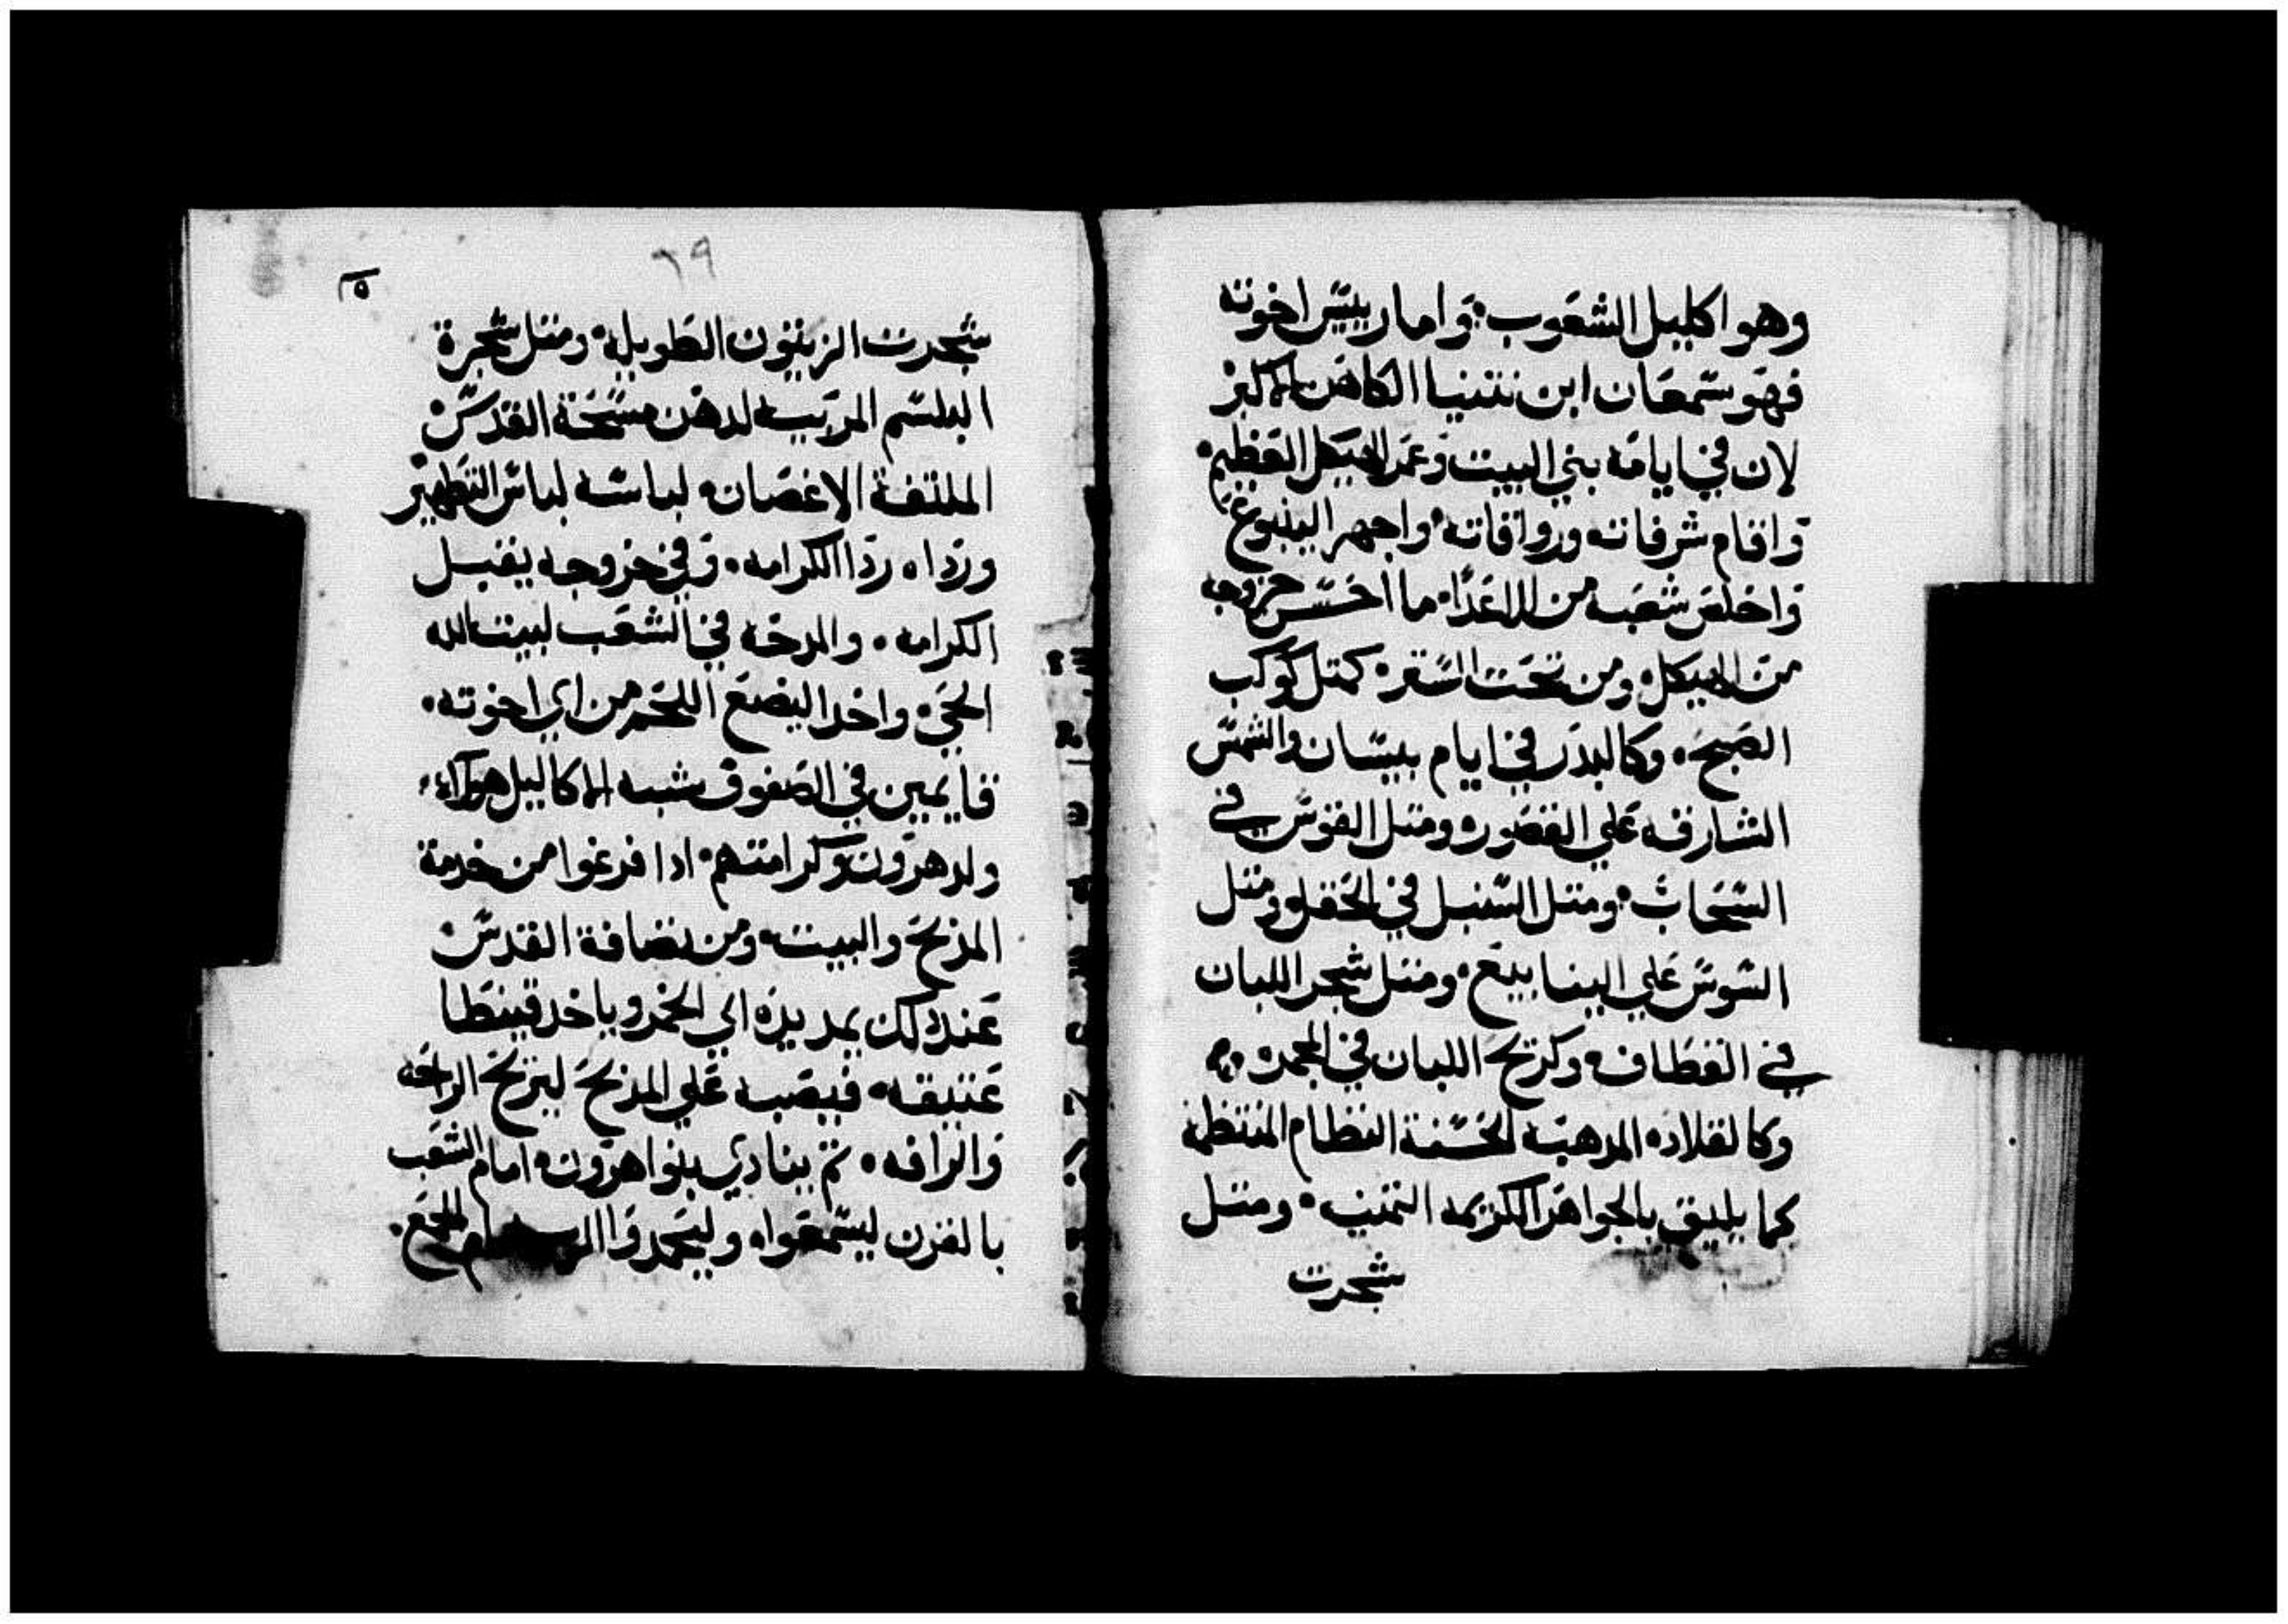 وهو اكليل الشعوب؛ واما رييس اخوته
فهو سمعان ابن نتنيا الكاهن الاكبر
لان في ايامه بني البيت وعمر الهيكل العظيم
واقام شرفاته ورواقاته واجهر الينبوع
واخلص شعبه من الاعدا ما احسن خروجه
من الهيكل ومن تحت الستر كمتل كوكب
الصبح وكالبدر في ايام نيسان والشمس
الشارقه علي القصور ومتل القوس في
السحاب ومتل السنبل في الحقل ومتل
السوسن علي الينابيع ومتل شجر اللبان
في القطاف وكريح اللبان في المجمره
وكالقلاده المدهبه الحسنة النظام المنتظمه
كما يليق بالجواهر الكريمه التمينه ومتل
شجرت
٦٩
٥
شجرت الزيتون الطويله ومتل شجرة
البلسم المرتبه لدهن مسحة القدس
الملتفة الاغصان لباسه لباس التطهير
ورداه ردا الكرامه وفي خروجه يقبل
الكرامه والمدحه في الشعب لبيت الله
الحي واخد البضع اللحم من اي اخوته
قايمين في الصفوف شبه الاكاليل هولاء
ولد هرون وكرامتهم ادا فرغوا من خدمة
المذبح والبيت ومن نضافة القدس
عند دلك يمد يده الي الخمر وياخد قينطا
عتيقه فيصبه علي المذبح ليزيح الراحه
والرافه تم ينادي بنوا هرون امام الشعب
بالقرن ليسمعواه وليحمدوا الجمع